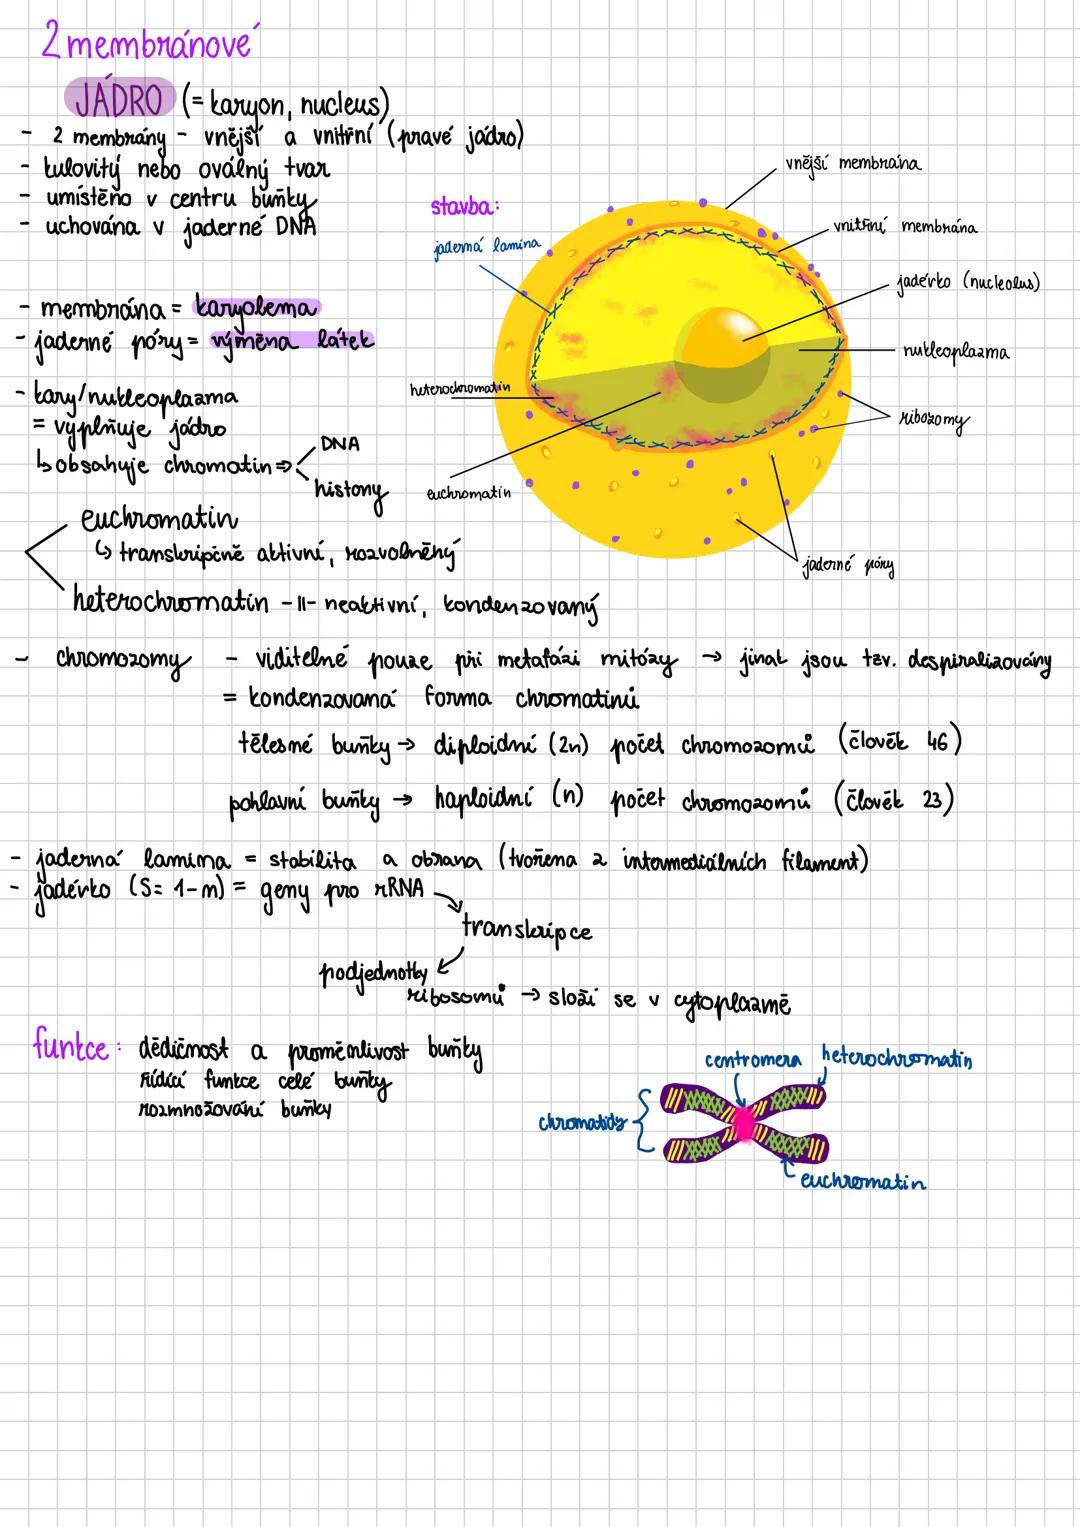 2 membránové
JÁDRO (= karyon, nucleus)
- 2 membrány - vnější a vnitřní (pravé jádro)
- kulovitý nebo oválný tvar
- umístěno v centru buňky
- uchována v jaderné DNA
- membrána = karyolema
- jaderné póry = výměna látek
- kary/nukleoplazma
= vyplňuje jádro
↳ obsahuje chromatin ⇒ DNA
histony
euchromatin
↳ transkripčně aktivní, rozvolněný
heterochromatin -11- neaktivní, kondenzovaný
stavba:
jaderná lamina
heterochromatin
euchromatin
vnější membrána
vnitřní membrána
jadérko (nucleolus)
nukleoplazma
ribozomy
jaderné póry
- chromozomy - viditelné pouze při metafázi mitózy → jinak jsou tzv. despiralizovány
= kondenzovaná forma chromatinů
tělesné buňky → diploidní (2n) počet chromozomů (člověk 46)
pohlavní buňky → haploidní (n) počet chromozomů (člověk 23)
- jaderná lamina = stabilita a obrana (tvořena z intermediálních filament)
- jadérko (S= 1-m) = geny pro rRNA
transkripce
podjednotky
ribosomů → složí se v cytoplazmě
funkce: dědičnost a proměnlivost buňky
řídící funkce celé buňky
rozmnožování buňky
centromera heterochromatin
chromatidy
euchromatin